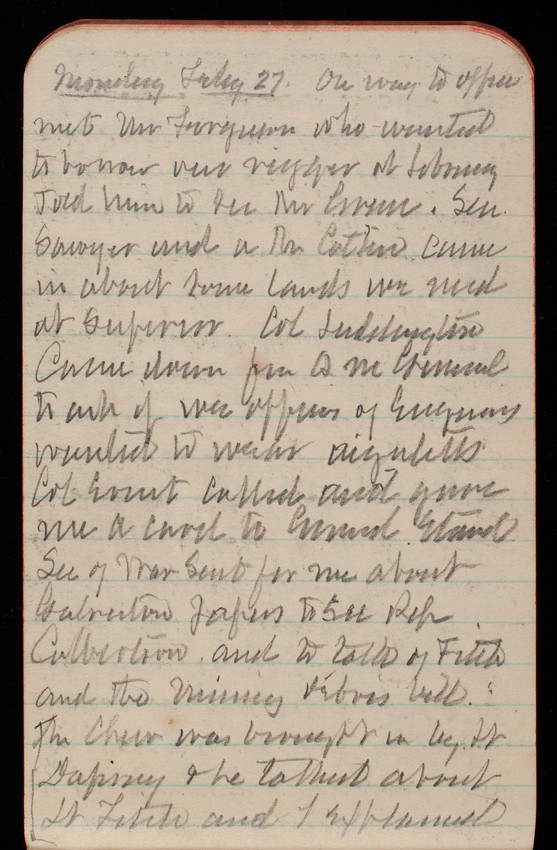 Monday Feby 27. On way to office
met Mr Ferguson who wanted
to borrow our
Told him to see Mr Green. Sen.
Sawyer and a Mr Catlin came
in about some lands we need
at Superior. Col Luddington
Came down from Q M General
to ask if we officers of Engineers
wanted to wear aiguletts
Col Ernst called and gave
me a card to General
Sec of War sent for me about
Galveston Japers to see Rep
Culbertson. and to talk of Fitch
and the Mining debris bill.
The Chew was brought in by Lt
& he talked about
Lt Fitch and I explained